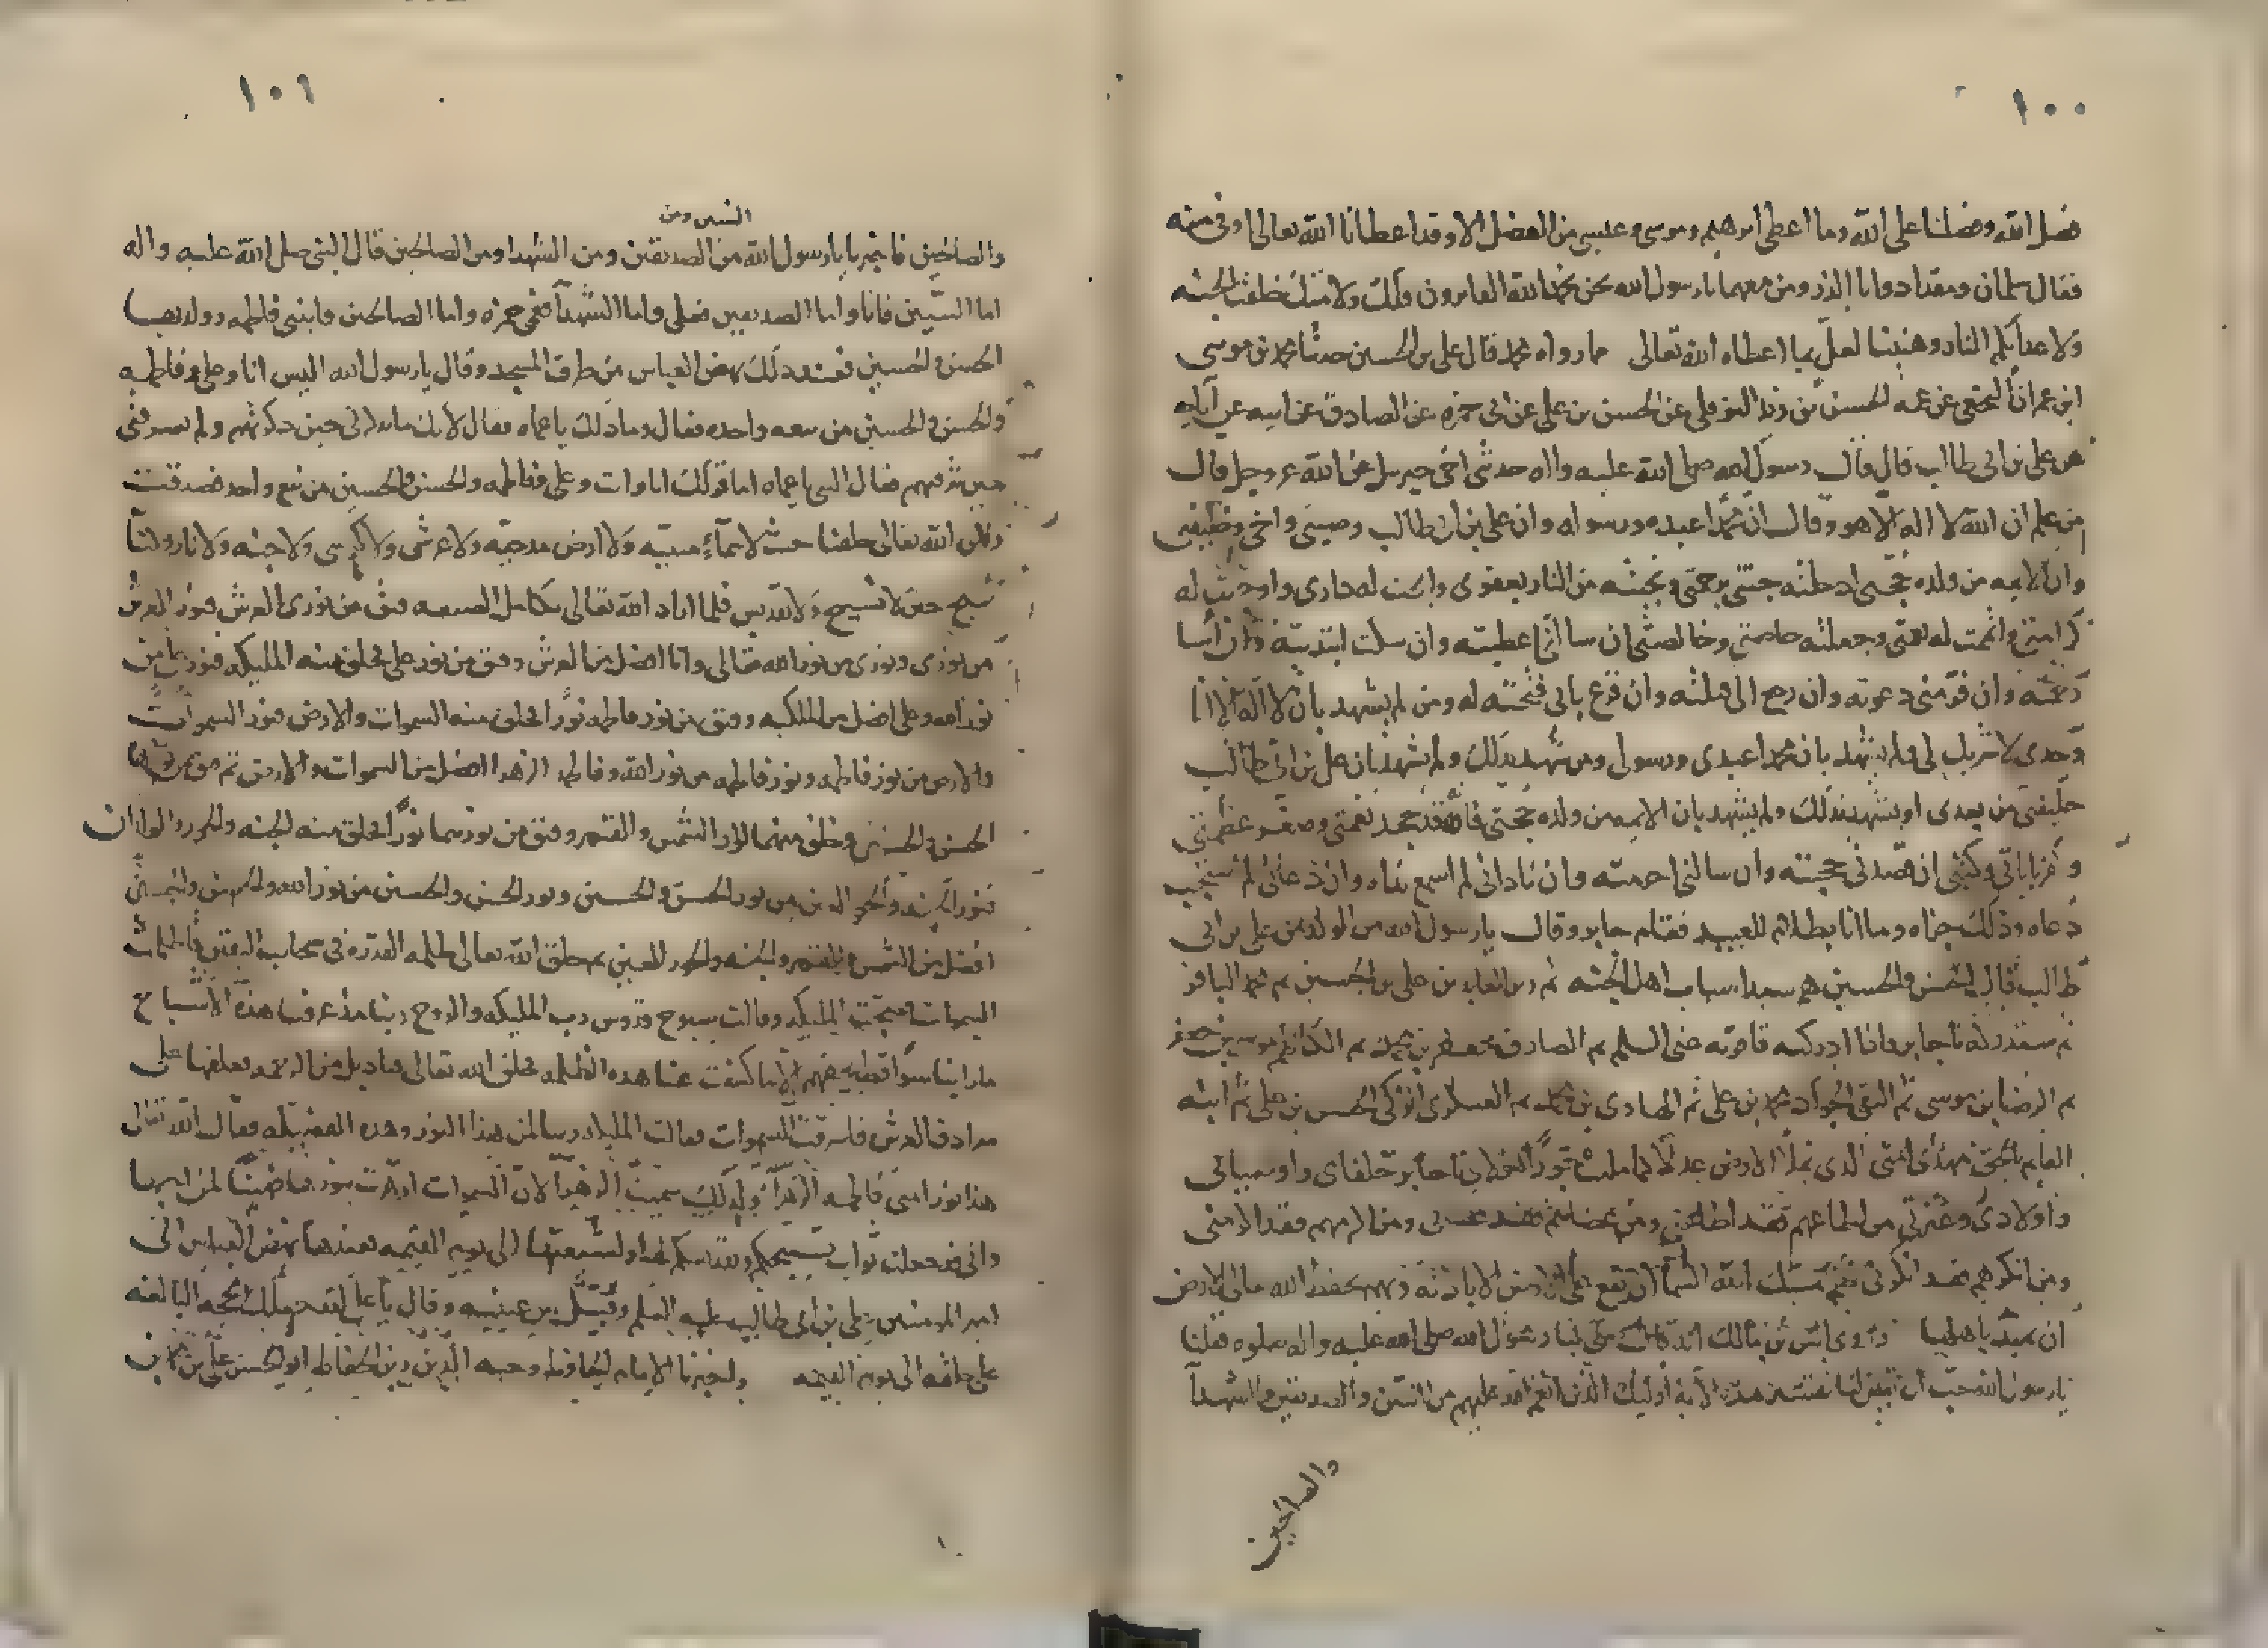 ١٠٠
فضل الله وفضلنا على الله وما اعطى ابرهيم وموسى وعيسى من الفضل الا وقد اعطانا الله تعالى اوفى منه
فقال سلمان ومقداد وابا الذر ومن معهما يا رسول الله نحن بحمد الله الفايزون ولك ولامتك خلقت الجنة
ولاعدائكم النار وهنيئا لعلى بما اعطاه الله تعالى مما رواه محمد قال على بن الحسين حدثنا محمد بن موسى
ابن عمران النخعى عن عمه الحسين بن زيد النوفلى عن الحسن بن على عن ابى حمزه عن الصادق عن ابيه عن آبايه
عن على بن ابى طالب قال قال رسول الله صلى الله عليه واله حدثنى اخى جبرئيل عن الله عز وجل قال
من علم ان الله لا اله الا هو وقال ان محمدا عبده ورسوله وان على بن ابى طالب وصيى واخى وخليفتى
وان الايمه من ولده حججى ادخلته جنتى برحمتى ونجيته من النار بعفوى وابحت له جوارى واوجبت له
كرامتى واتممت له نعمتى وجعلته خاصتى وخالصتى ان سالنى اعطيته وان سكت ابتديته وان اسا
رحمته وان فر منى دعوته وان رجع الى قبلته وان قرع بابى فتحته له ومن لم يشهد بان لا اله الا انا
وحدى لا شريك لى ولم يشهد بان محمدا عبدى ورسولى ومن شهد بذلك ولم يشهد بان على بن ابى طالب
خليفتى من بعدى او يشهد بذلك ولم يشهد بان الايمه من ولده حججى فانه فقد جحد نعمتى وصغر عظمتى
وكفر باياتى وكتبى ان قصدنى حجبته وان سالنى احرمته وان نادانى لم اسمع نداه وان دعانى لم استجيب
دعاه وذلك جزاه وما انا بظلام للعبيد فقام جابر وقال يا رسول الله من الولد من على بن ابى
طالب قال الحسن والحسين هم سيدا شباب اهل الجنه ثم زين العابدين على بن الحسين ثم محمد الباقر
ثم ستدركه يا جابر فاذا ادركته فاقرئه منى السلم ثم الصادق جعفر بن محمد ثم الكاظم موسى بن جعفر
ثم الرضا بن موسى ثم التقى الجواد محمد بن على ثم الهادى بن محمد ثم العسكرى الزكى الحسن بن على ثم ابنه
القايم بالحق مهدى امتى الذى يملأ الارض عدلا كما ملئت جورا هؤلاء يا جابر خلفاى واوصيائى
واولادى وعترتى من اطاعهم فقد اطاعنى ومن عصاهم فقد عصانى ومن
ومن انكرهم فقد انكرنى فبهم يمسك الله السما ان تقع على الارض الا باذنه وبهم يحفظ الله تعالى الارض
ان تميد باهلها روى انس بن مالك انه قال صلى بنا رسول الله صلى الله عليه واله صلوه فقلنا
يا رسول الله نحب ان تفسر لنا هذه الآية اوليك الذين انعم الله عليهم من النبين والصديقين والشهدا
والصالحين
١٠١
النبين ومن
والصالحين فاخبرنا يا رسول الله من الصديقين ومن الشهدا ومن الصالحين قال النبى صلى الله عليه واله
اما النبيين فانا واما الصديقين فعلى واما الشهدآ فعمى حمزه واما الصالحين فابنتى فاطمه وولديها
الحسن والحسين فعند ذلك نهض العباس من طرف المسجد وقال يا رسول الله اليس انا وعلى وفاطمه
والحسن والحسين من نبعه واحده فقال وما ذلك يا عماه فقال لانك ما تذكرنى حين ذكرتهم ولم تشرفنى
حين شرفتهم فقال النبى يا عماه اما قولك انا وانت وعلى وفاطمه والحسن والحسين من نبع واحد فصدقت
ولكن الله تعالى خلقنا حيث لا سمآء مبنيه ولا ارض مدحيه ولا عرش ولا كرسى ولا جنه ولا نار وكنا
نسبح حين لا تسبيح ولا تقديس فلما اراد الله تعالى تكامل الصنعه فتق من نورى العرش فنور العرش
من نورى ونورى من نور الله تعالى وانا افضل من العرش وفتق من نور على فخلق منه المليكه فنورها من
نور الله وعلى افضل من المليكه وفتق من نور فاطمه نورا فخلق منه السموات والارض فنور السموات
والارض من نور فاطمه ونور فاطمه من نور الله وفاطمه الزهدا افضل من السموات والارض ثم فتق من نور
الحسن والحسين وخلق منهما انوار الشمس والقمر وفتق من نورهما نورا فخلق منه الجنه والحور والولدان
فنور الجنة والحور العين من نور الحسن والحسين ونور الحسن والحسين من نور الله والحسن والحسين
افضل من الشمس والقمر والجنه والحور العين ثم خلق الله تعالى ظلمه القدره فى سحاب فاظلمت
السموات فضجت المليكه وقالت سبوح قدوس رب المليكه والروح ربنا مذ عرفنا هذه الاشباح
ما راينا سوا فبحقهم الا ما كشفت عنا هذه الظلمه فخلق الله تعالى قناديل من الرحمه فعلقها على
سرادق العرش فاشرقت السموات فقالت المليكه ربنا لمن هذا النور وهذه الفضيله فقال الله تعالى
هذا نور امتى فاطمه الزهرآء ولذلك سميت الزهرآ لان السموات ازهرت بنورها
وانى قد جعلت ثواب تسبيحكم وتقديسكم لها ولشيعتها الى يوم القيمه فعندها نهض العباس الى
امير المومنين على بن ابى طالب عليه السلم وقبل بين عينيه وقال يا على لقد جعلك الله الحجه البالغه
على خلقه الى يوم القيمه واخبرنا الامام الحافظ وحبه الدين زين الحفاظ ابو الحسن على بن